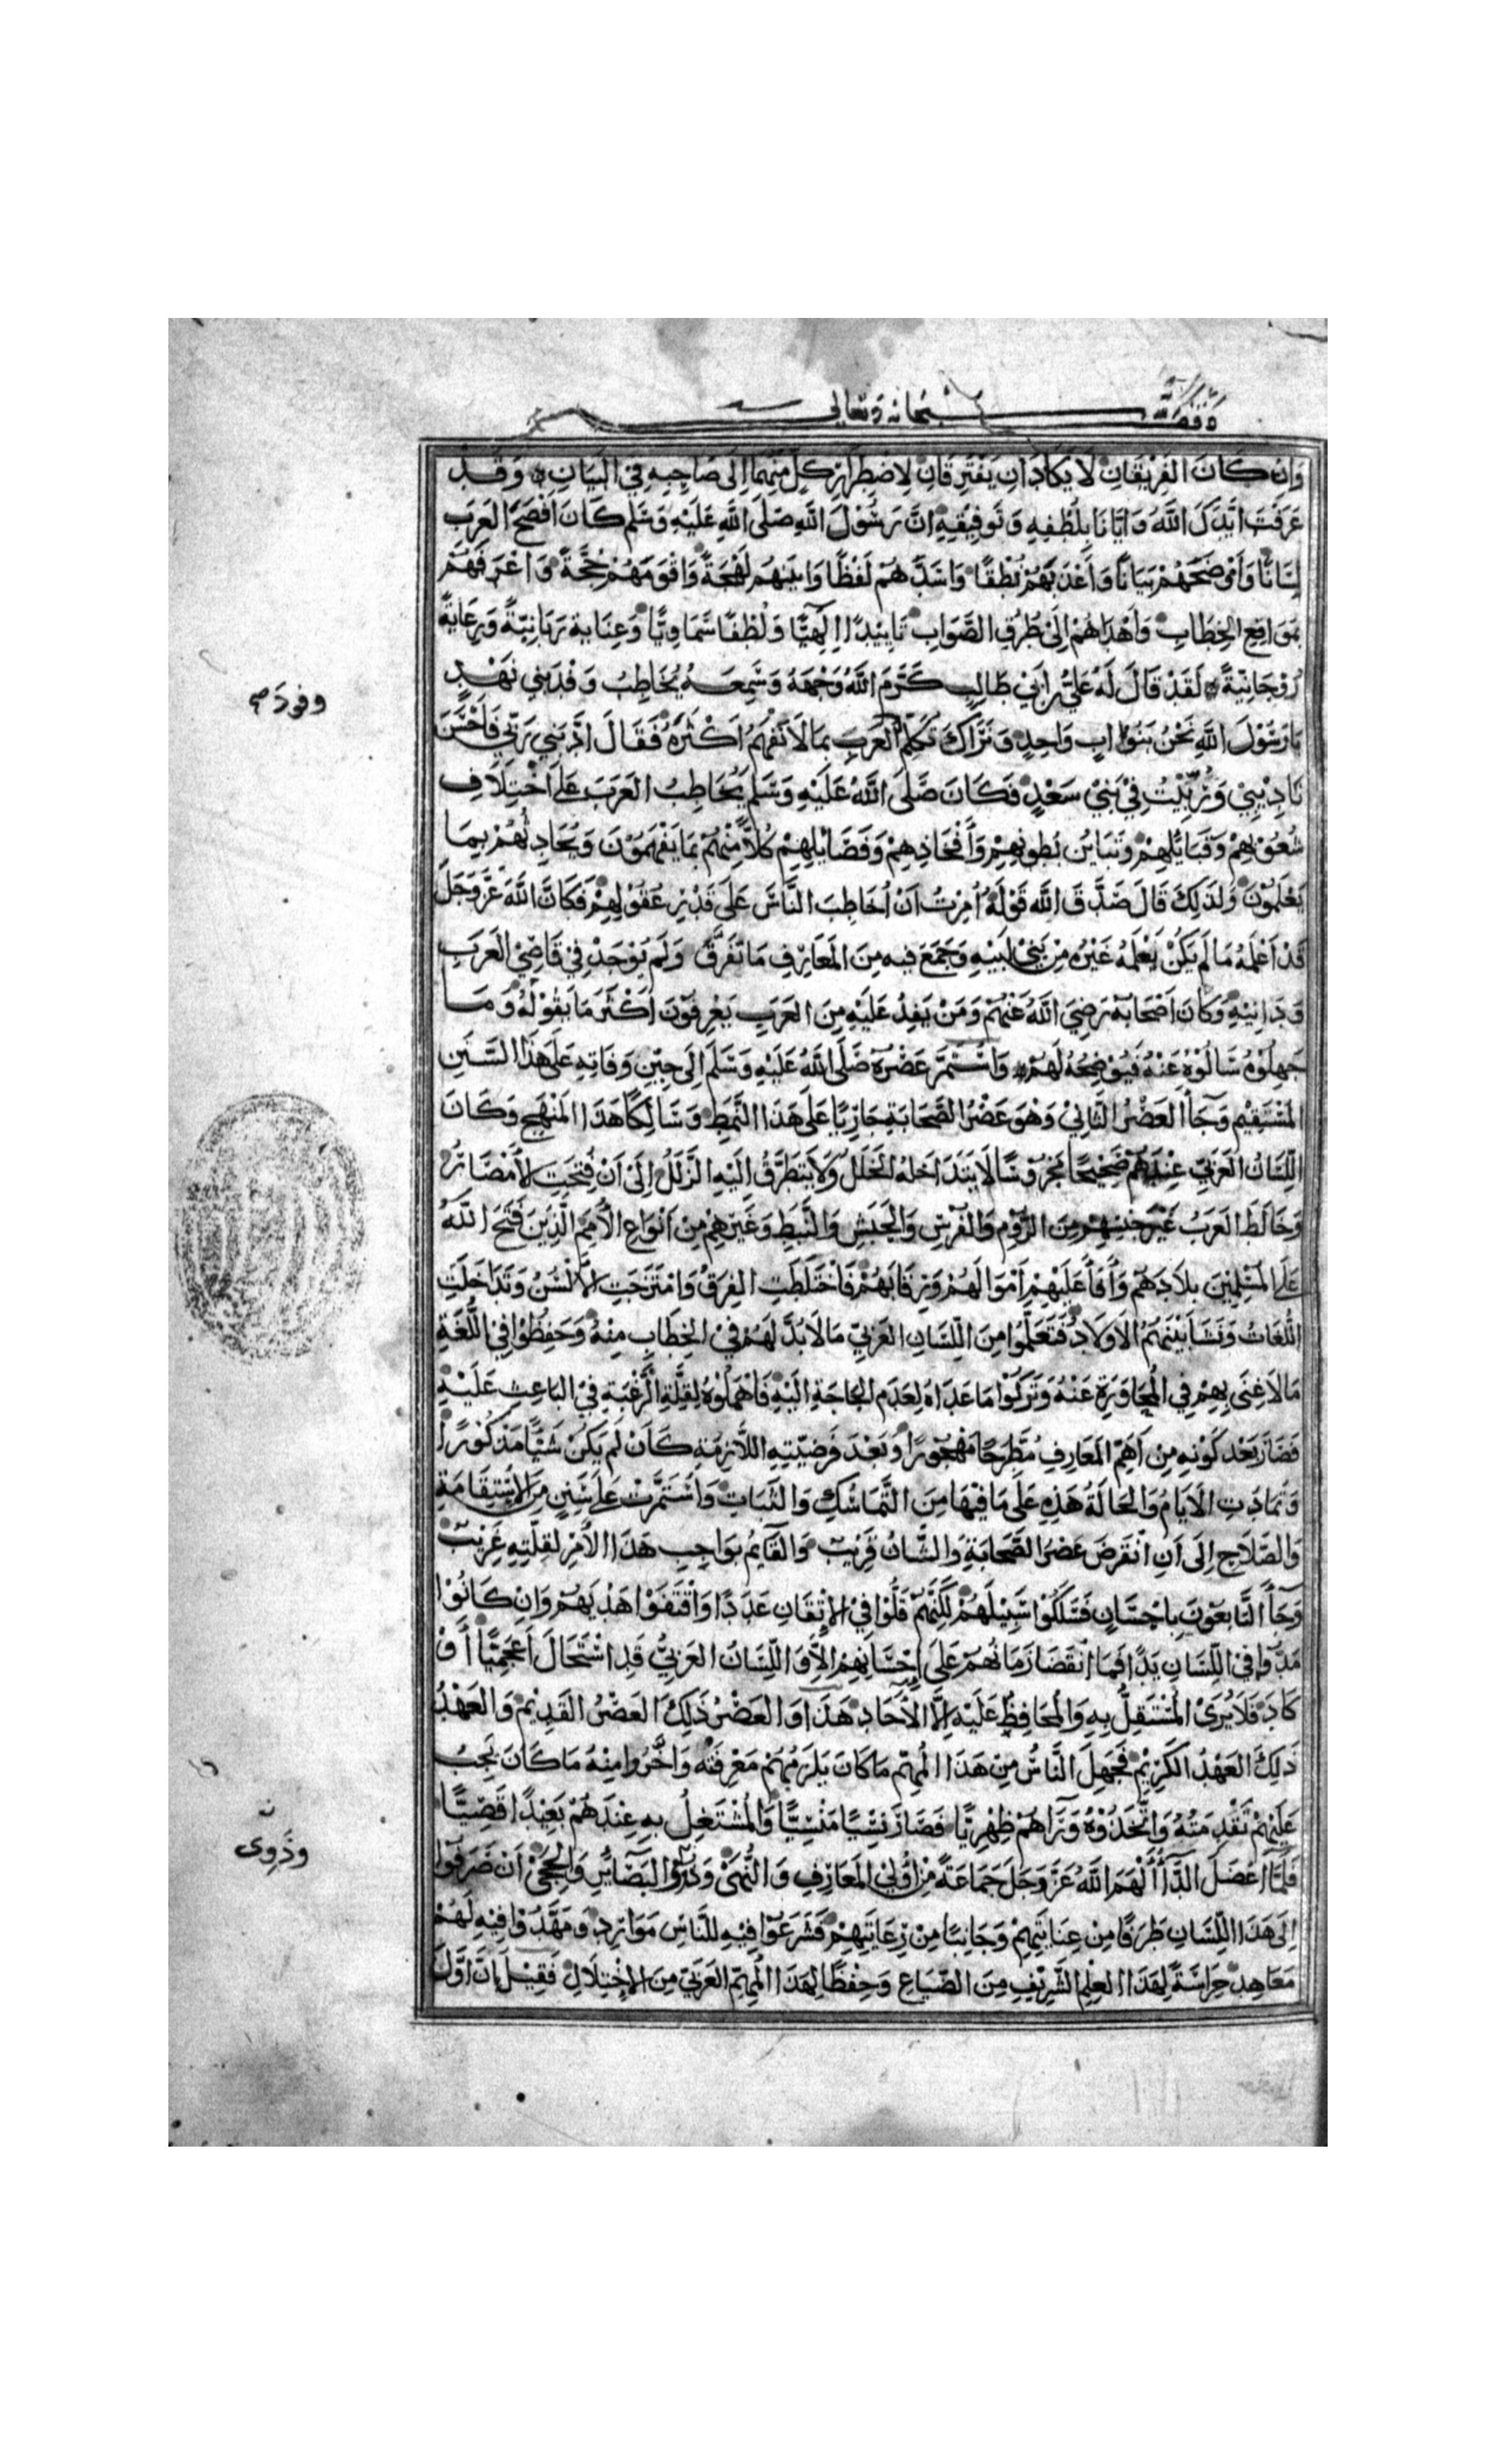 وقف لله سبحانه وتعالى
وَاِنْ كَانَ الفَرِيْقَانِ لَا يَكَادَانِ يَفْتَرِقَانِ لِاضْطِرَارِ كِلٍّ مِنْهُمَا اِلَى صَاحِبِهِ فِي البَيَانِ وَقَدْ
عَرَفْتَ اَيَّدَكَ اللَّهُ وَاِيَّانَا بِلُطْفِهِ وَتَوفِيْقِهِ اَنَّ رَسُوْلَ اللَّهِ صَلَّى اللَّهُ عَلَيْهِ وَسَلَّم كَانَ اَفْصَحَ العَرَبِ
لِسَانًا وَأَوْضَحَهُمْ بَيَانًا وَأَعْذَبَهُمْ نُطْقًا وَاَسَدَّهُمْ لَفْظًا وَابْيَنَهُم لَهْجَةً وَاقْوَمَهُمْ حُجَّةً وَاعْرَفَهُمْ
بِمَوَاقِعِ الخِطَابِ وَأَهْدَاهُمْ اِلَى طُرُقِ الصَّوَابِ تَايِيْدًا اِلَهِيًّا وَلُطْفًا سَمَاوِيًّا وَعِنَايةً رَبَّانِيَّةً وَرِعَايَةً
رُوْحَانِيَّةً لَقَدْ قَالَ لَهُ عَلِيُّ بْنُ اَبِي طَالِبٍ كَرَّمَ اللَّهُ وَجْهَهُ وَسَمِعَهُ يُخَاطِبُ وَفْدَ بَنِي نَهْدٍ
وفودَ صح
يَا رَسُوْلَ اللَّهِ نَحْنُ بَنُوْا اَبٍ وَاحِدٍ وَنَرَاكَ تُكَلِّمُ العَرَبَ بِمَا لَا نَفْهَمُ اَكْثَرَهُ فَقَالَ اَدَّبَنِي رَبِّي فَاَحْسَنَ
تَادِيْبِيْ وَرُبِّيْتُ فِيْ بَنِيْ سَعْدٍ فَكَانَ صَلَّى اللَّهُ عَلَيْهِ وَسَلَّم يُخَاطِبُ العَرَبَ عَلَى اخْتِلَافِ
شُعُوْبِهِمْ وَقَبَائِلِهِمْ وَتَبَايُنِ بُطُونِهِمْ وَأَفْخَاذِهِمْ وَفَصَائِلِهِمْ كُلًّا مِنْهُمْ بِمَا يَفْهَمُوْنَ وَيُحَادِثُهُمْ بِمَا
يَعْلَمُوْنَ وَلِذَلِكَ قَالَ صَدَّقَ اللَّه قَوْلَهُ اُمِرْتُ اَنْ اُخَاطِبَ النَّاسَ عَلَى قَدْرِ عُقُوْلِهِمْ فَكَاَنَّ اللَّهَ عَزَّ وَجَلَّ
قَدْ اَعْلَمَهُ مَا لَمْ يَكُنْ يَعْلَمُهُ غَيْرُهُ مِنْ بَنِيْ اَبِيْهِ وَجَمَعَ فيه مِنَ المَعَارِفِ مَا تَفَرَّقَ وَلَمْ يُوْجَدْ فِيْ قَاصِيْ العَرَبِ
وَدَانِيْهِ وَكَانَ اَصْحَابُهُ رَضِيَ اللَّهُ عَنْهُمْ وَمَنْ يَفِدُ عَلَيْهِ مِنَ العَرَبِ يَعْرِفُوْنَ اَكْثَرَ مَا يَقُوْلُهُ وَمَا
جَهِلُوْهُ سَاَلُوْهُ عَنْهُ فَيُوْضِحُهُ لَهُمْ وَاسْتَمَرَّ عَصْرُهُ صَلَّى اللَّهُ عَلَيْهِ وَسَلَّم اِلَى حِيْنِ وَفَاتِهِ عَلَى هَذَا السَّنَنِ
المُسْتَقِيْمِ وَجَاَ العَصْرُ الثَّانِيْ وَهُوَ عَصْرُ الصَّحَابَةِ جَارِيًا عَلَى هَذَا النَّمَطِ وَسَالِكًا هَذَا المَنْهَجِ وَكَانَ
اللِّسَانُ العَرَبِيُّ عِنْدَهُمْ صَحِيْحًا مَحْرُوْسًا لَا يَتَدَاخَلُهُ الخَلَلُ وَلَا يَتَطَرَّقُ اِلَيْهِ الزَّلَلُ اِلَى اَنْ فُتِحَتِ الاَمْصَارُ
وَخَالَطَ العَرَبُ غَيْرَ جِنْسِهِمْ مِنَ الرُّوْمِ وَالفُرْسِ وَالحَبَشِ وَالنَّبَطِ وَغَيْرِهِمْ مِن اَنْوَاعِ الأُمَمِ الَّذِيْنَ فَتَحَ اللَّهُ
عَلَى المُسْلِمِيْنَ بِلَادَهُمْ وَأَفَاَ عَلَيْهِمْ اَمْوَالَهُمْ وَرِقَابَهُمْ فَاخْتَلَطَتِ الفِرَقُ وَامْتَزَجَتِ الأَلْسُنُ وَتَدَاخَلَتِ
اللُّغَاتُ وَنَشَاَ بَيْنَهُمُ الاَولَادُ فَتَعَلَّمُوْا مِنَ اللِّسَانِ العَرَبِيِّ مَا لَا بُدَّ لَهُمْ فِيْ الخِطَابِ مِنْهُ وَحَفِظُوْا مِنَ اللُّغَةِ
مَا لَا غِنَى بِهِمْ فِي المُحَاوَرَةِ عَنْهُ وَتَرَكُوْا مَا عَدَاهُ لِعَدَمِ الحَاجَةِ اِلَيْهِ فَاَهْمَلُوْهُ لِقِلَّةِ الرَّغْبَةِ فِيْ البَاعِثِ عَلَيْهِ
فَصَارَ بَعْدَ كَوْنِهِ مِنْ اَهَمِّ المَعَارِفِ مُطَّرَحًا مَهْجُوْرًا وَبَعْدَ فَرْضِيَّتِهِ اللَّازِمَةِ كَاَنْ لَمْ يَكُنْ شَيْئًا مَذْكُوْرًا
وَتَمَادَتِ الاَيَامُ وَالحَالَةُ هَذِهِ عَلَى مَا فِيْهَا مِنَ التَّمَاسُكِ وَالثَّبَاتِ وَاسْتَمَرَّتْ عَلَى سَنَنٍ مِنَ الاِسْتِقَامَةِ
وَالصَّلَاحِ اِلَى أَنِ انْقَرَضَ عَصْرُ الصَّحَابَةِ وَالشَّانُ قَرِيْبٌ وَالقَايِمُ بِوَاجِبِ هَذَا الاَمْرِ لِقِلَّتِهِ غَرِيْبٌ
وَجَاَ التَّابِعُوْنَ بِاِحْسَانٍ فَسَلَكُوْا سَبِيْلَهُمْ لَكِنَّهُمْ قَلُّوْا فِيْ الاِتْقَانِ عَدَدًا وَاقْتَفَوْا هَدْيَهُمْ وَاِنْ كَانُوْا
مَدُّوْا فِي اللِّسَانِ يَدًا فَمَا انْقَضَا زَمَانُهُمْ عَلَى اِحْسَانِهِمْ اِلَّا وَاللِّسَانُ العَرَبِيُّ قَدِ اسْتَحَالَ اَعْجَمِيًّا أَوْ
كَادَ فَلَا يُرَى المُسْتَقِلُّ بِهِ وَالمُحَافِظُ عَلَيْهِ اِلَّا الآحَادُ هَذَا وَالعَصْرُ ذَلِكَ العَصْرُ القَدِيْمُ وَالعَهْدُ
ذَلِكَ العَهْدُ الكَرِيْمُ فَجَهِلَ النَّاسُ مِنْ هَذَا المُهِمِّ مَا كَانَ يَلْزَمُهُمْ مَعْرِفَتُه وَاَخَّرُوا مِنْهُ مَا كَانَ يَجِبُ
عَلَيْهِمْ تَقْدِمَتُهُ وَاتَّخَذُوْهُ وَرَاهُمْ ظِهْرِيًّا فَصَارَ نَسْيًا مَنْسِيًّا وَالمُشْتَغِلُ بِهِ عِنْدَهُمْ بَعِيْدًا قَصِيًّا
فَلَمَّا اَعْضَلَ الدَّاُ أَلْهَمَ اللَّهُ عَزَّ وَجَلَّ جَمَاعَةً مِنْ اُولِيْ المَعَارِفِ وَالنُّهَى وَذَوِي البَصَائِرِ وَالحِجَى اَنْ صَرَفُوْا
وذَوِى
اِلَى هَذَا اللِّسَانِ طَرَفًا مِنْ عِنَايَتِهِمْ وَجَانِبًا مِنْ رِعَايَتِهِمْ فَشَرَعُوْا فِيْهِ لِلنَّاسِ مَوَارِدَ وَمَهَّدُوْا فِيْهِ لَهُمْ
مَعَاهِدَ حِرَاسَةً لِهَذَا العِلْمِ الشَّرِيْفِ مِنَ الضَّيَاعِ وَحِفْظًا لِهَذَا المُهِمِّ العَرَبِيِّ مِنَ الاِخْتِلَالِ فَقِيْلَ اِنَّ اَوَّلَ